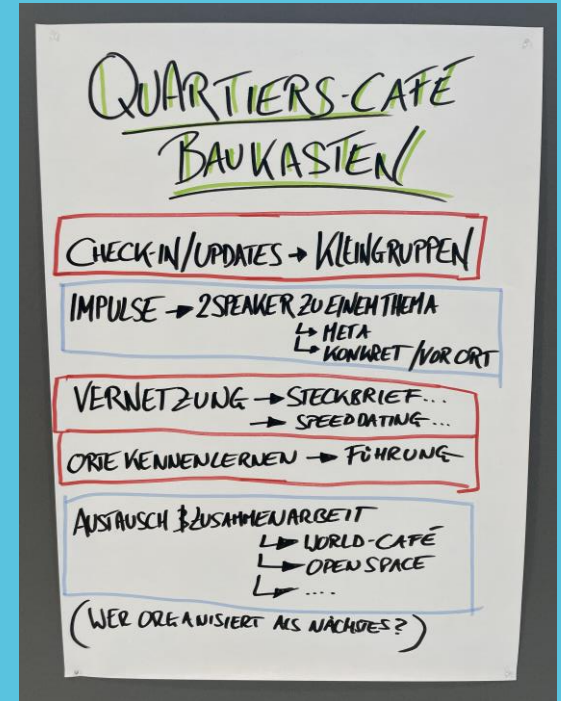 QUARTIERS-CAFÉ
BAUKASTEN
CHECK-IN/UPDATES → KLEINGRUPPEN
IMPULSE → 2 SPEAKER ZU EINEM THEMA
↳ META
↳ KONKRET/VOR ORT
VERNETZUNG → STECKBRIEF...
→ SPEEDDATING...
ORTE KENNENLERNEN → FÜHRUNG
AUSTAUSCH & ZUSAMMENARBEIT
↳ WORLD-CAFÉ
↳ OPEN SPACE
↳ ....
(WER ORGANISIERT ALS NÄCHSTES?)